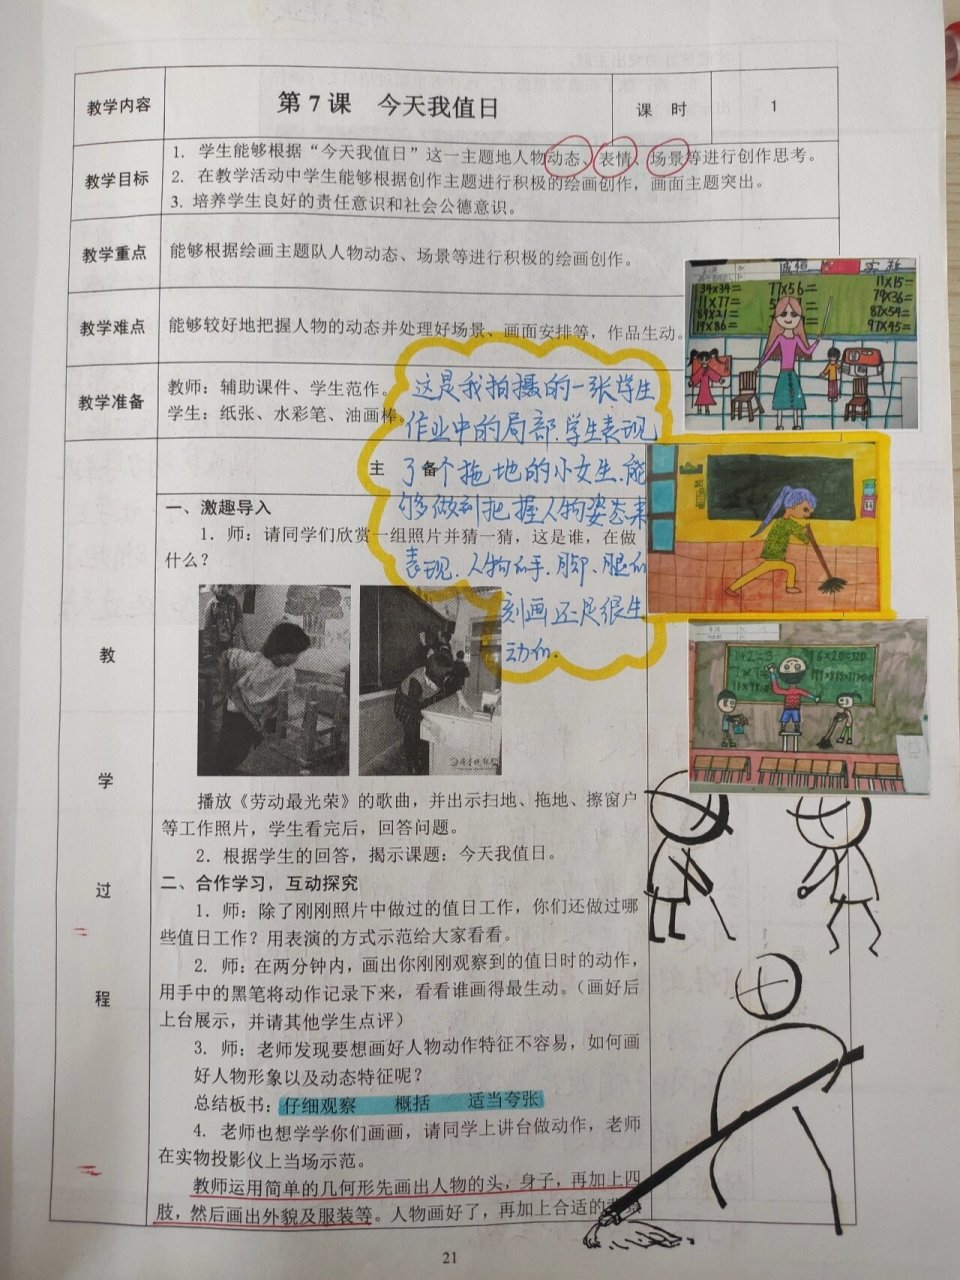 教学内容
第 7 课 今天我值日
课 时
1
教学目标
1. 学生能够根据“今天我值日”这一主题地人物动态、表情、场景等进行创作思考。
2. 在教学活动中学生能够根据创作主题进行积极的绘画创作，画面主题突出。
3. 培养学生良好的责任意识和社会公德意识。
教学重点
能够根据绘画主题队人物动态、场景等进行积极的绘画创作。
教学难点
能够较好地把握人物的动态并处理好场景、画面安排等，作品生动。
教学准备
教师：辅助课件、学生范作。
学生：纸张、水彩笔、油画棒。
这是我拍摄的一张学生
作业中的局部.学生表现
了个拖地的小女生.能
够做到把握人物姿态来
表现.人物的手、脚、腿的
刻画还是很生
动的.
34X34=
77X56=
11X15=
111X77=
79X36=
84X21=
87X54=
19X86=
97X45=
主 备
教
学
过
程
一、激趣导入
1. 师：请同学们欣赏一组照片并猜一猜，这是谁，在做
什么？
播放《劳动最光荣》的歌曲，并出示扫地、拖地、擦窗户
等工作照片，学生看完后，回答问题。
2. 根据学生的回答，揭示课题：今天我值日。
二、合作学习，互动探究
1. 师：除了刚刚照片中做过的值日工作，你们还做过哪
些值日工作？用表演的方式示范给大家看看。
2. 师：在两分钟内，画出你刚刚观察到的值日时的动作，
用手中的黑笔将动作记录下来，看看谁画得最生动。（画好后
上台展示，并请其他学生点评）
3. 师：老师发现要想画好人物动作特征不容易，如何画
好人物形象以及动态特征呢？
总结板书：仔细观察 概括 适当夸张
4. 老师也想学学你们画画，请同学上讲台做动作，老师
在实物投影仪上当场示范。
教师运用简单的几何形先画出人物的头，身子，再加上四
肢，然后画出外貌及服装等。人物画好了，再加上合适的
21